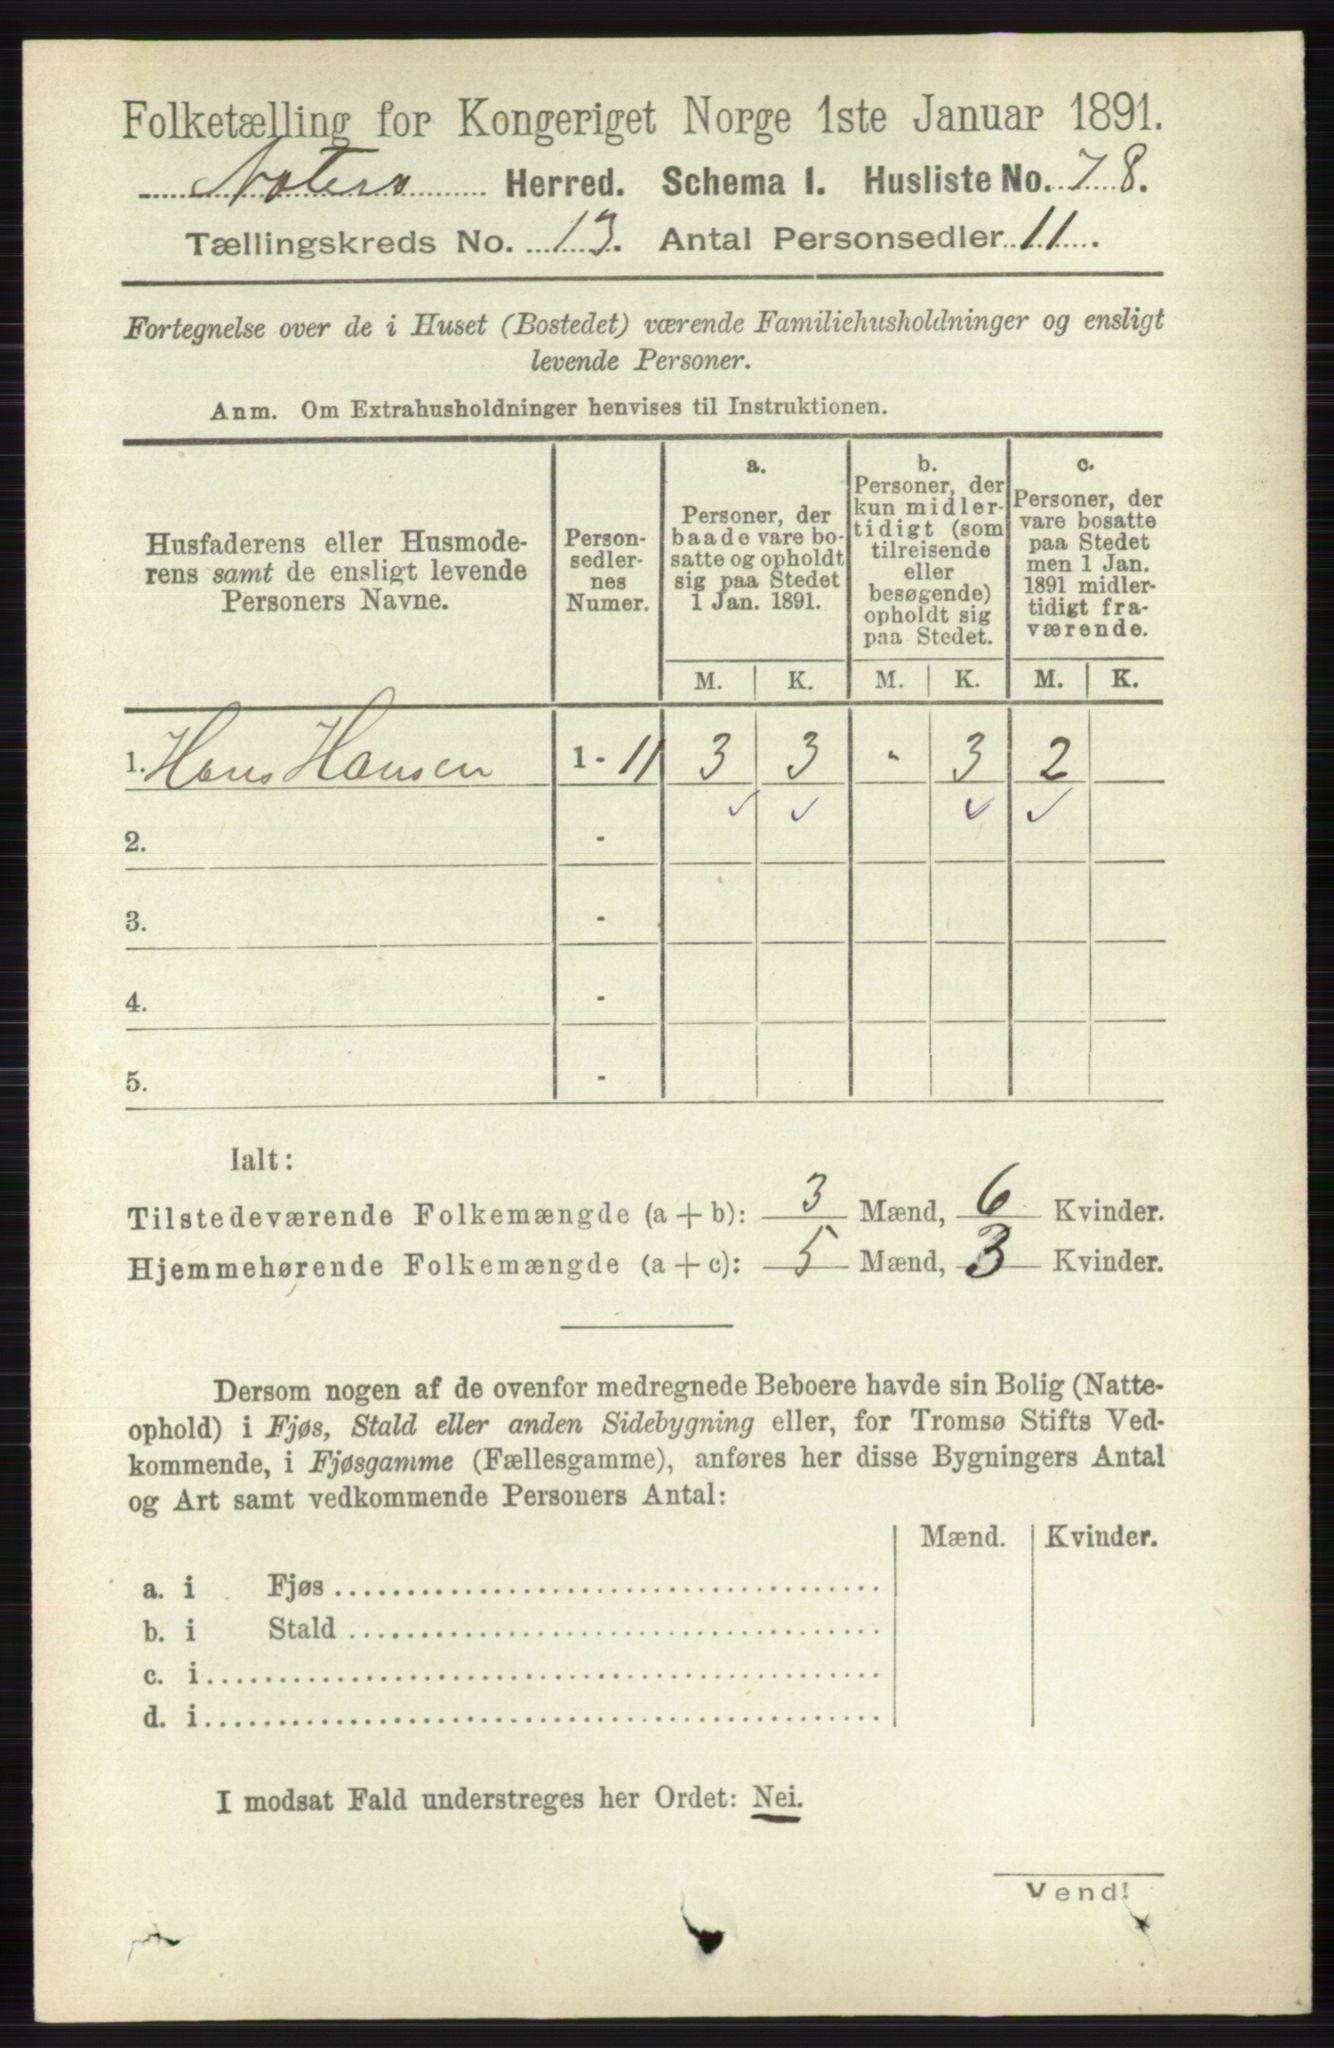 Folketælling for Kongeriget Norge 1ste Januar 1891.
Nøterø Herred. Schema I. Husliste No. 78.
Tællingskreds No. 13. Antal Personsedler 11.
Fortegnelse over de i Huset (Bostedet) værende Familiehusholdninger og ensligt
levende Personer.
Anm. Om Extrahusholdninger henvises til Instruktionen.
Husfaderens eller Husmode-
rens samt de ensligt levende
Personers Navne.
Person-
sedler-
nes
Numer.
a.
Personer, der
baade vare bo-
satte og opholdt
sig paa Stedet
1 Jan. 1891.
b.
Personer, der
kun midler-
tidigt (som
tilreisende
eller
besøgende)
opholdt sig
paa Stedet.
c.
Personer, der
vare bosatte
paa Stedet
men 1 Jan.
1891 midler-
tidigt fra-
værende.
M. K. M. K. M. K.
1. Hans Hansen 1 - 11 3 3 - 3 2
✓ ✓ ✓ ✓
2. -
3. -
4. -
5. -
Ialt:
Tilstedeværende Folkemængde (a + b): 3 Mænd, 6 Kvinder.
Hjemmehørende Folkemængde (a + c): 5 Mænd, 3 Kvinder.
Dersom nogen af de ovenfor medregnede Beboere havde sin Bolig (Natte-
ophold) i Fjøs, Stald eller anden Sidebygning eller, for Tromsø Stifts Ved-
kommende, i Fjøsgamme (Fællesgamme), anføres her disse Bygningers Antal
og Art samt vedkommende Personers Antal:
Mænd. Kvinder.
a. i Fjøs
b. i Stald
c. i
d. i
I modsat Fald understreges her Ordet: Nei.
Vend!